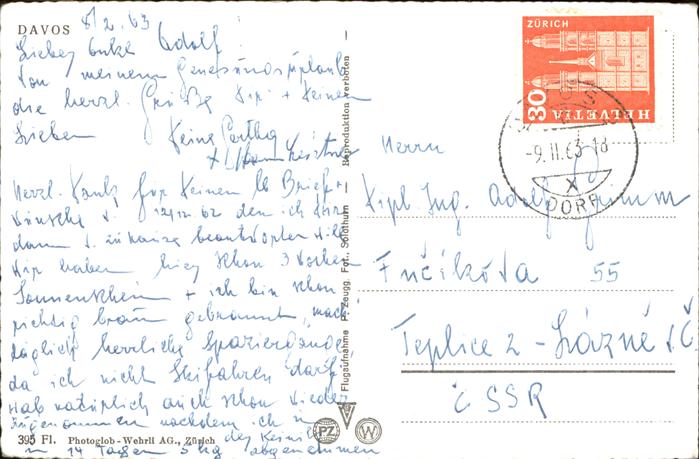 DAVOS 8/2.63
Lieber Onkel Adolf!
Von meinem Genesungsurlaub
die herzl. Grüße Dir + Deinen
Lieben
Herzl. Dank für Deinen lb Brief +
Wünsche v. 12/12 62 den ich Dir
dann v. zu Hause beantworten will
Wir haben hier schon 3 Wochen
Sonnenschein + ich bin schon
richtig braun gebrannt, mach
täglich herrliche Spaziergänge
da ich nicht Skifahren darf,
hab natürlich auch schon wieder
zugenommen nachdem ich in
der Klinik
in 14 Tagen 5 kg abgenommen
395 Fl. Photoglob-Wehrli AG., Zürich
Flugaufnahme P. Zeugg, Fot., Solothurn — Reproduktion verboten —
PZ W
ZÜRICH
30
HELVETIA
-9.II.63-18
X
DORF
Herrn
Dipl Ing. Adolf
Fučíkova 55
Teplice 2 - Lázně v Č
ČSSR